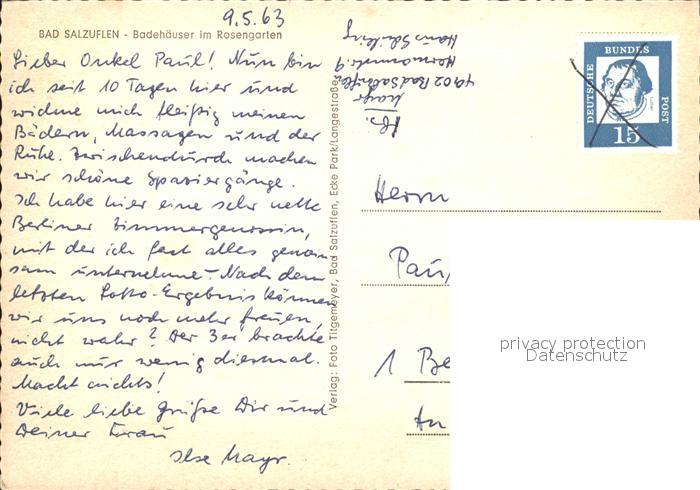 9.5.63
BAD SALZUFLEN - Badehäuser im Rosengarten
Lieber Onkel Paul! Nun bin
ich seit 10 Tagen hier und
widme mich fleißig meinen
Bädern, Massagen und der
Ruhe. Zwischendurch machen
wir schöne Spaziergänge.
Ich habe hier eine sehr nette
Berliner Zimmergenossin,
mit der ich fast alles gemein
sam unternehme. - Nach dem
letzten Lotto-Ergebnis können
wir uns noch mehr freuen,
nicht wahr? Der 3er brachte
auch nur wenig diesmal.
Macht nichts!
Viele liebe Grüße Dir und
Deiner Frau
Ilse Mayr.
Verlag: Foto Titgemeyer, Bad Salzuflen, Ecke Park/Langestraße
Abs.
Mayr
4902 Bad Salzuflen
Hermannstr. 9
Haus
DEUTSCHE
BUNDES
POST
Luther
15
Herrn
Pau
1 Be
An
privacy protection
Datenschutz